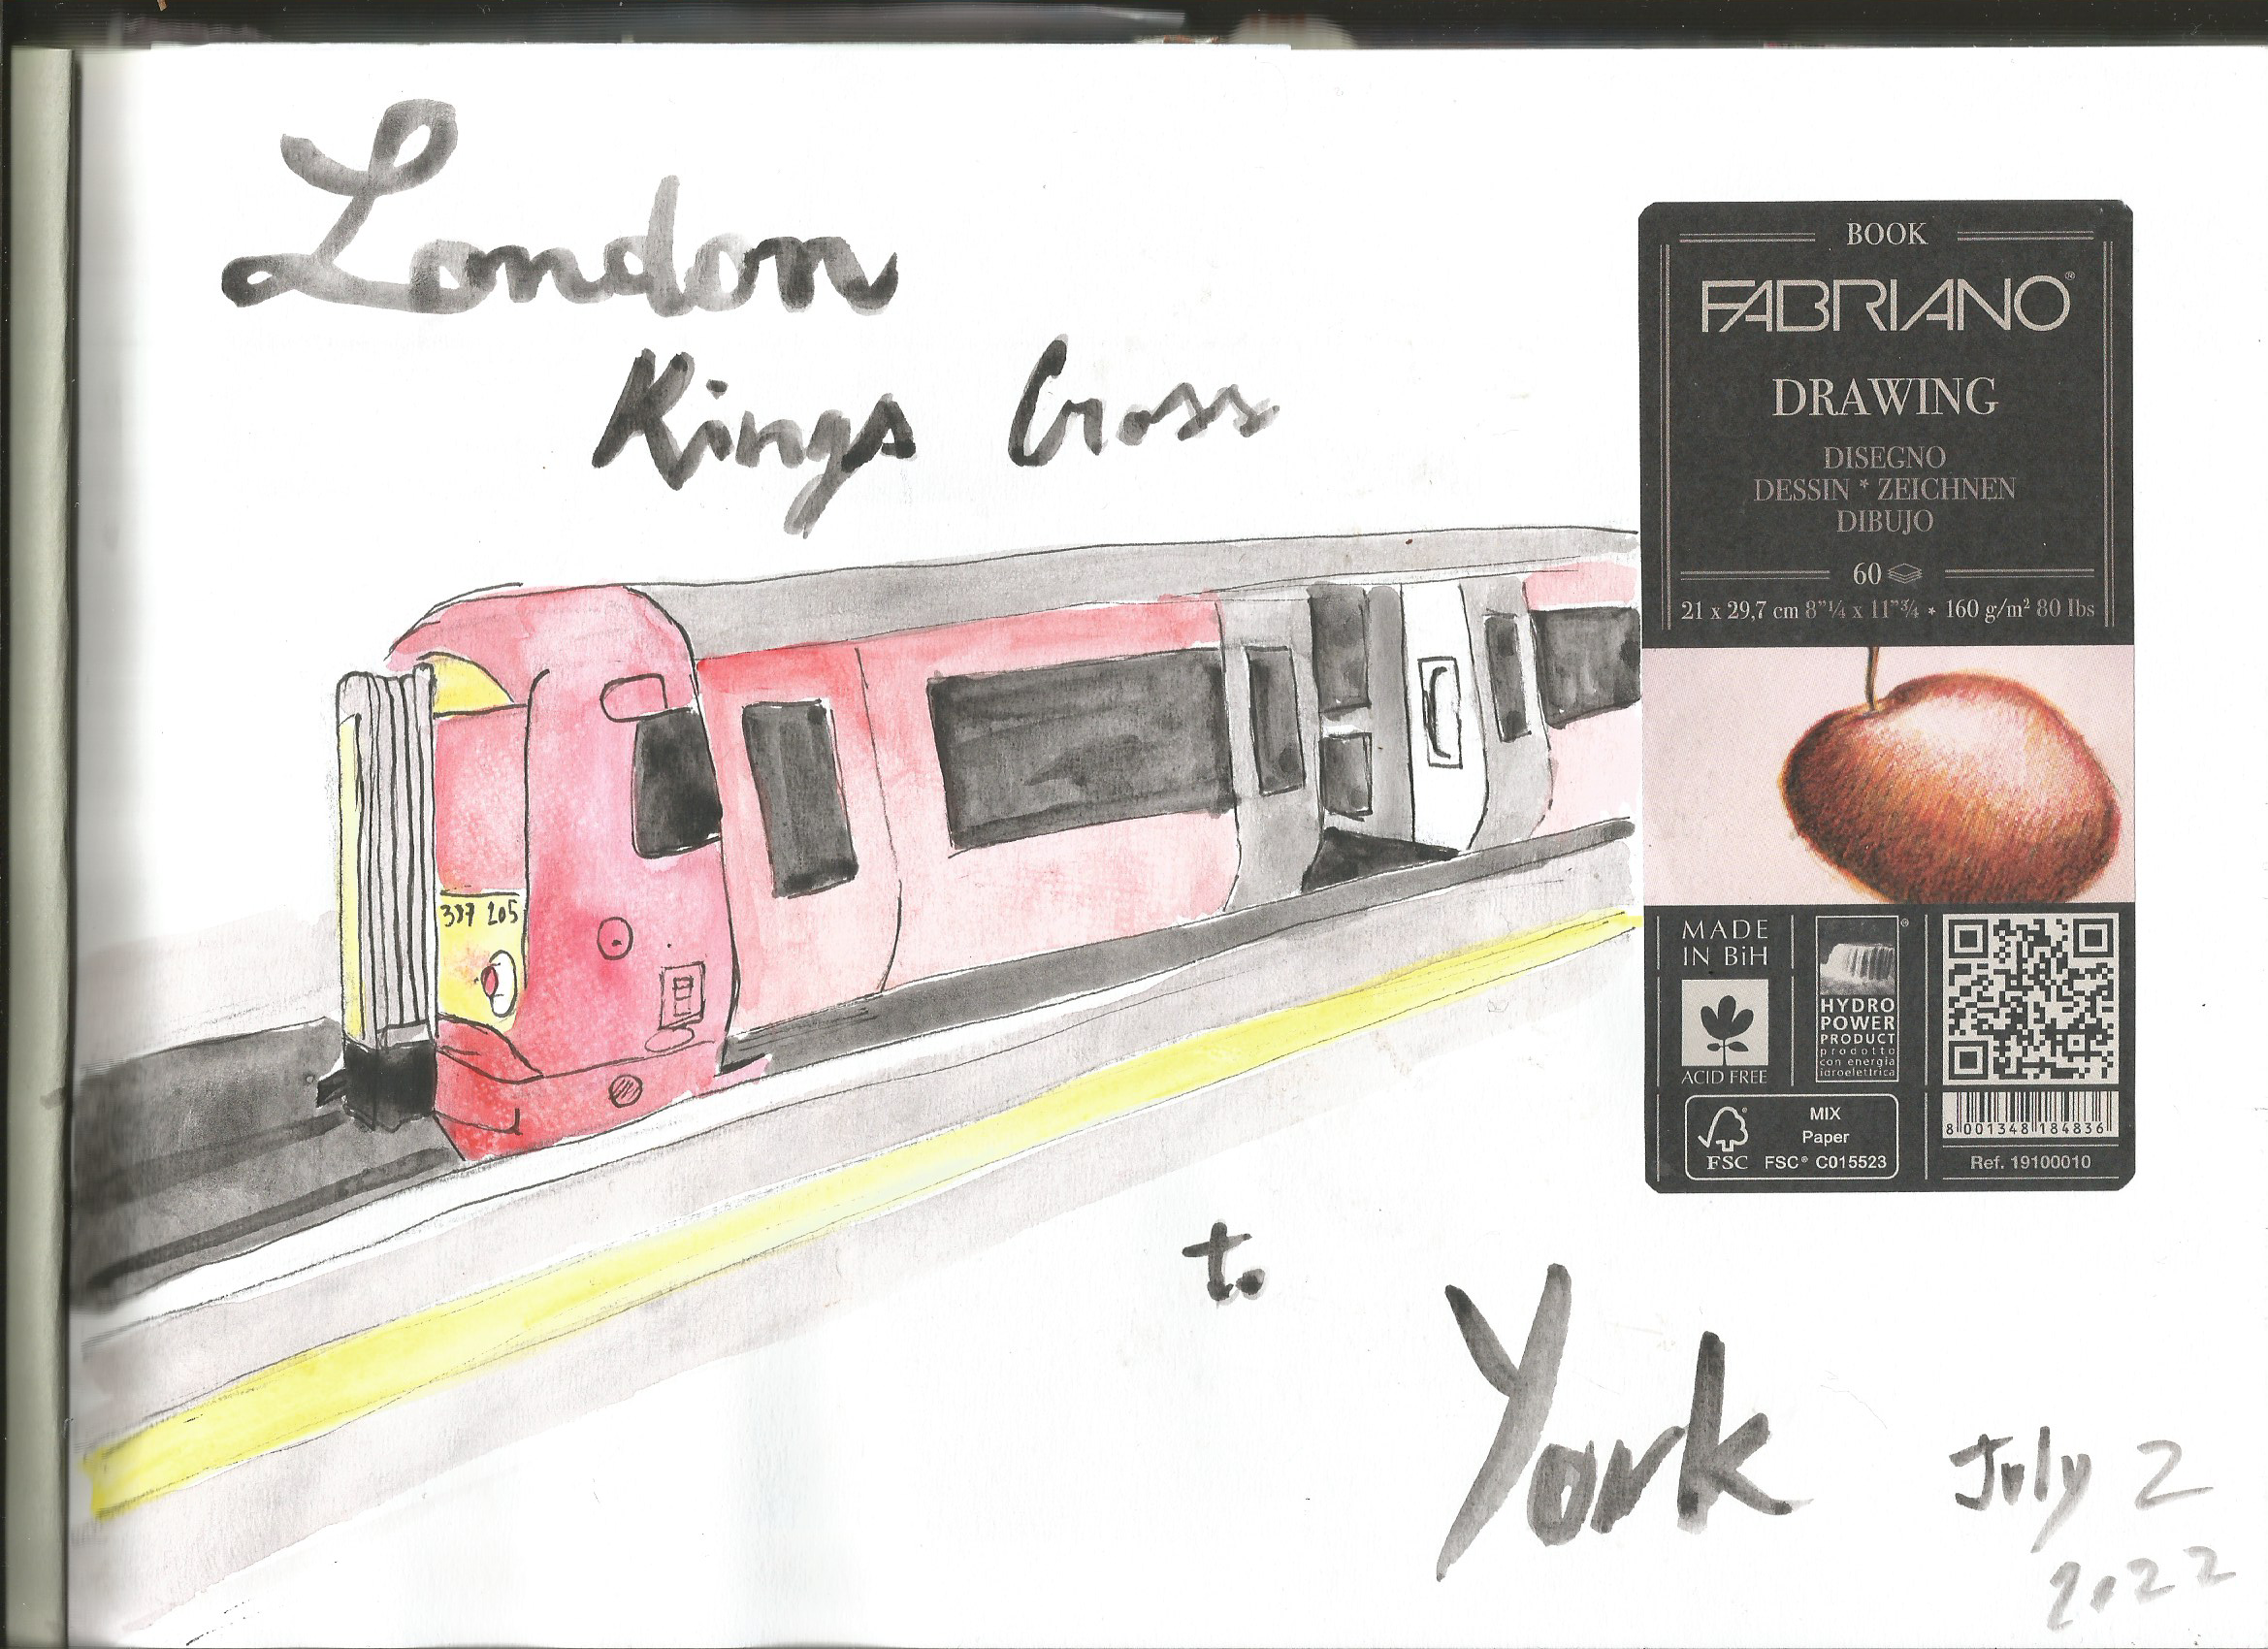 London
Kings Cross
387 205
BOOK
FABRIANO®
DRAWING
DISEGNO
DESSIN * ZEICHNEN
DIBUJO
60
21 x 29,7 cm 8"¼ x 11"¾ * 160 g/m² 80 lbs
MADE
IN BiH
ACID FREE
HYDRO
POWER
PRODUCT
prodotto
con energia
idroelettrica
8 001348 184836
MIX
Paper
FSC
FSC® C015523
Ref. 19100010
to
York
July 2
2022